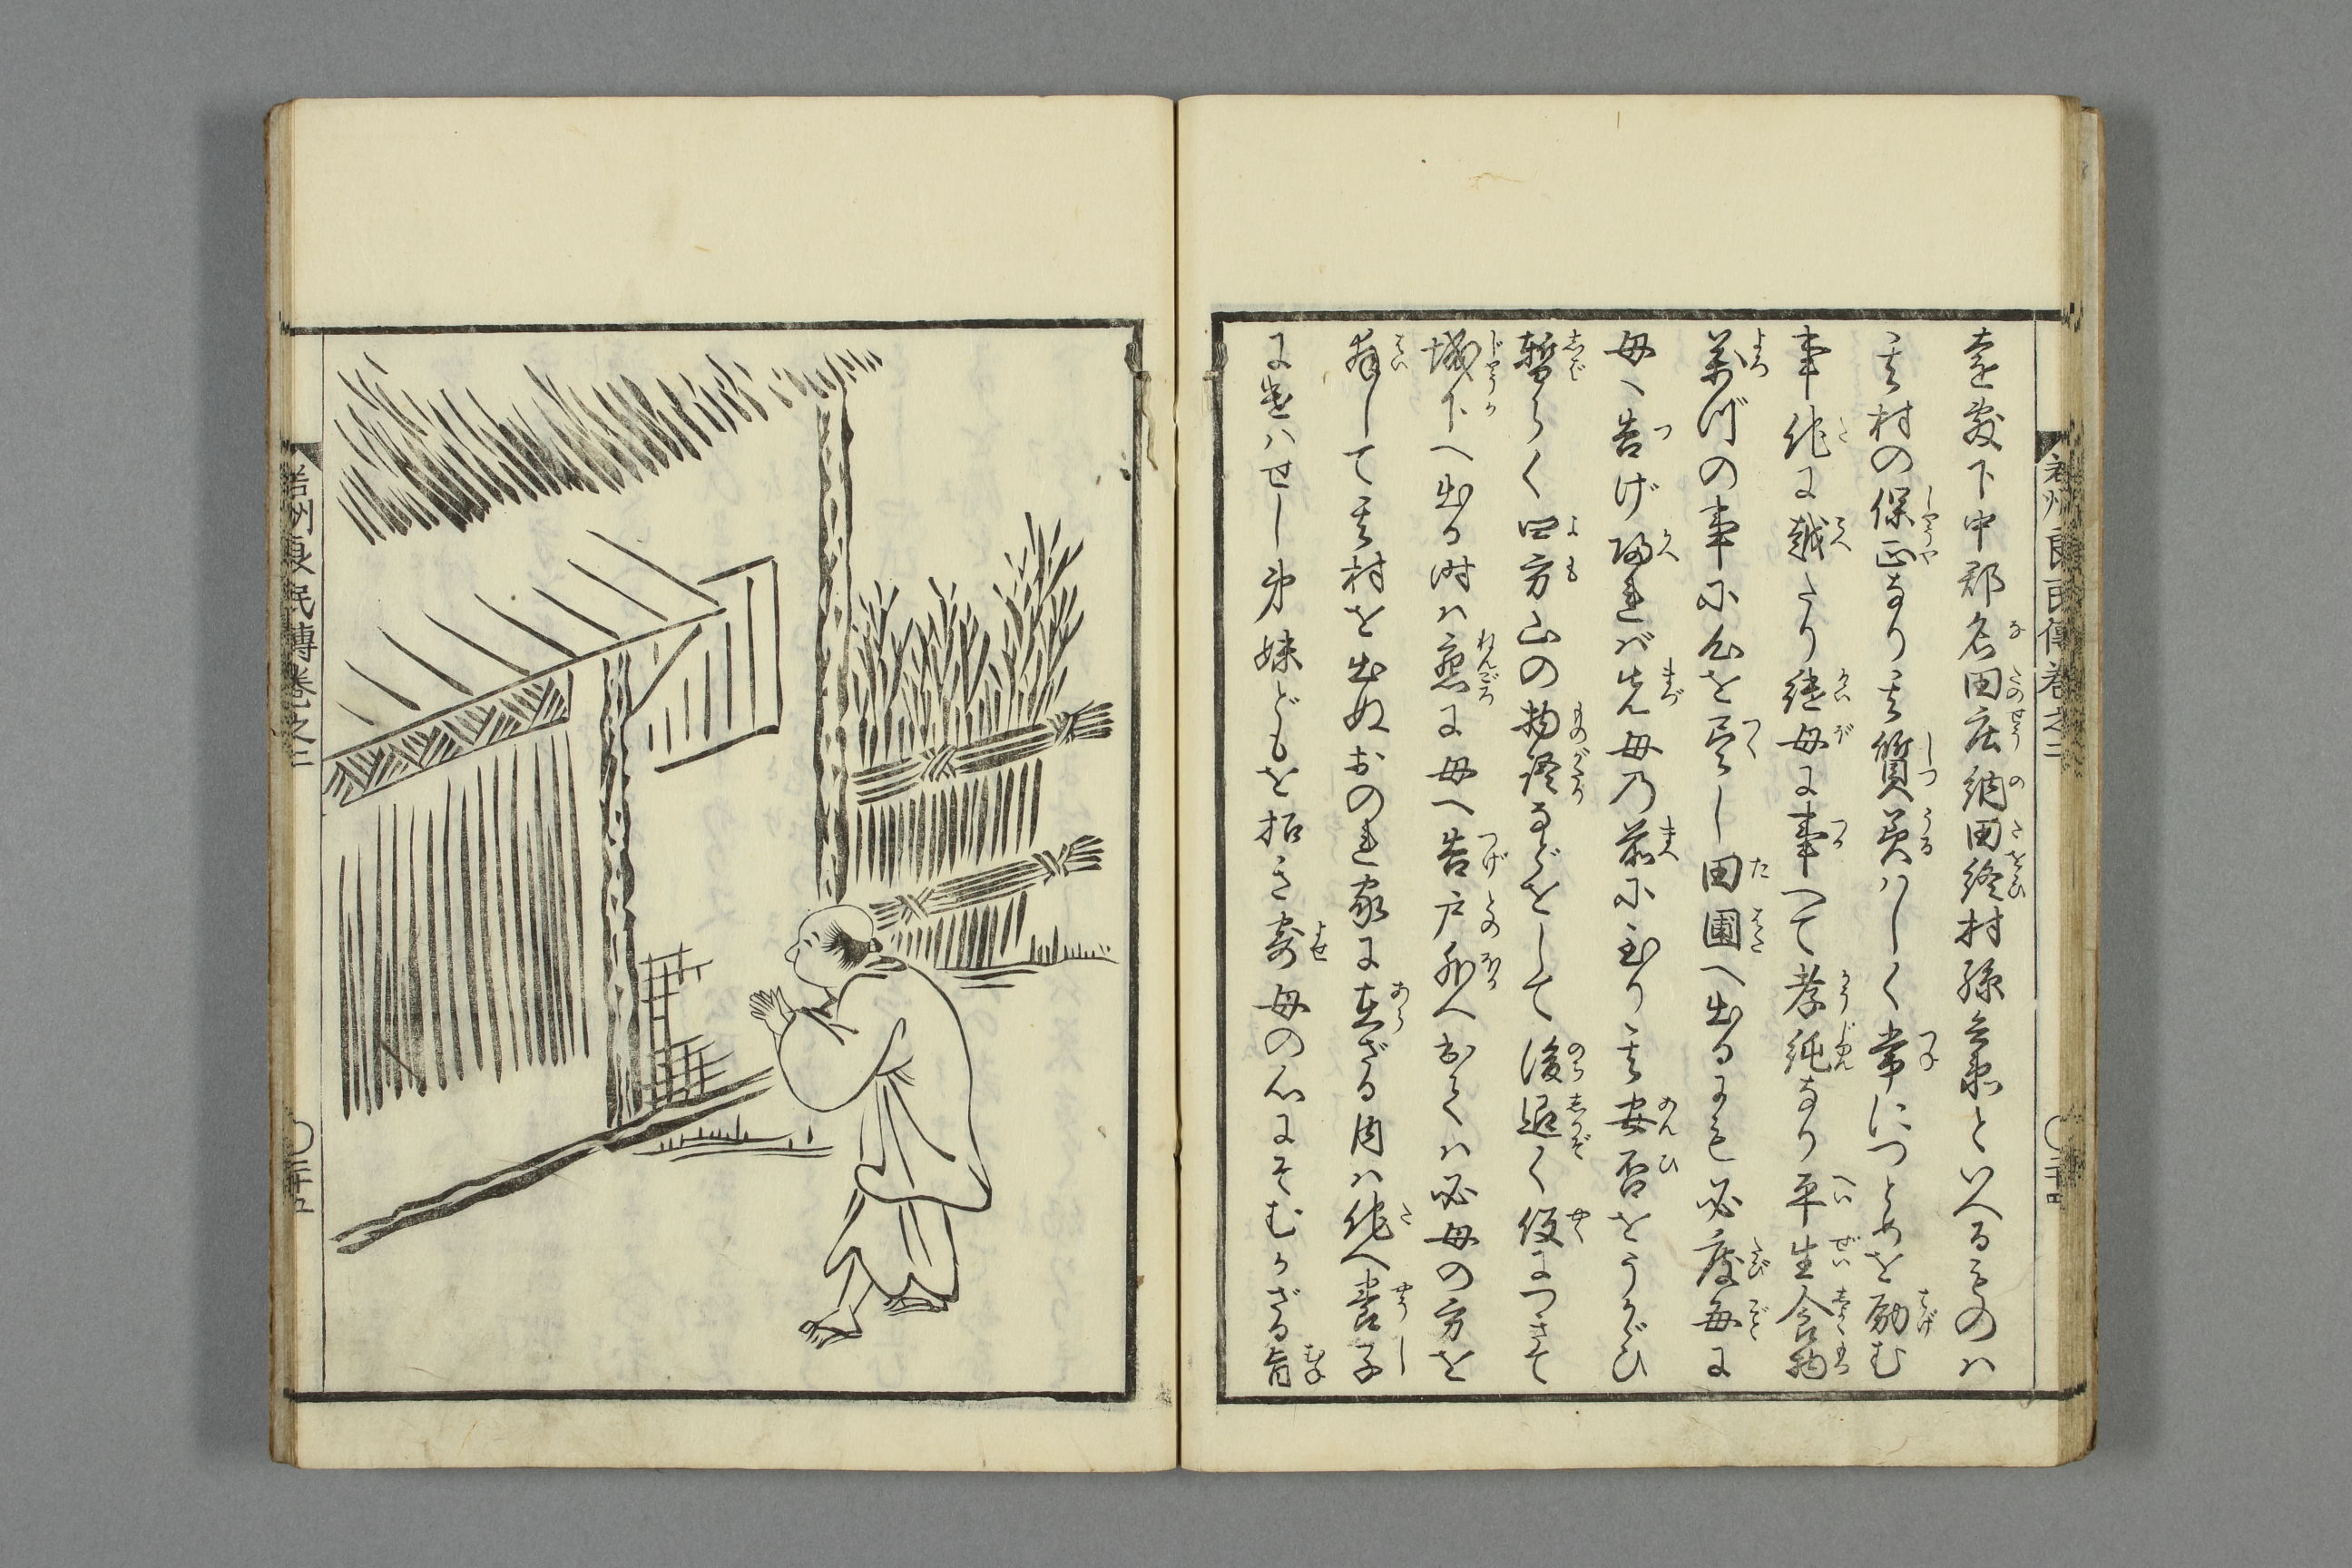 若州良民傳巻之二 〇二十四
遠敷下中郡名田庄納田終村孫兵衛といへるものハ
其村の保正なり其質美ハしく常につとめを励む
事他に越たり継母に事へて孝純なり平生食物
萬づの事に心を尽し田圃へ出るにも必度毎に
母へ告げ帰れバ先母の前に至り其安否をうかゞひ
暫らく四方山の物語などをして後退く役につきて
城下へ出る時ハ懇に母へ告戸外へおゐてハ必母の方を
拝して其村を出ぬおのれ家に在ざる内ハ他へ養子
に遣ハせし弟妹どもを招き寄母の心にそむかざる旨
若州良民傳巻之二 〇二十五